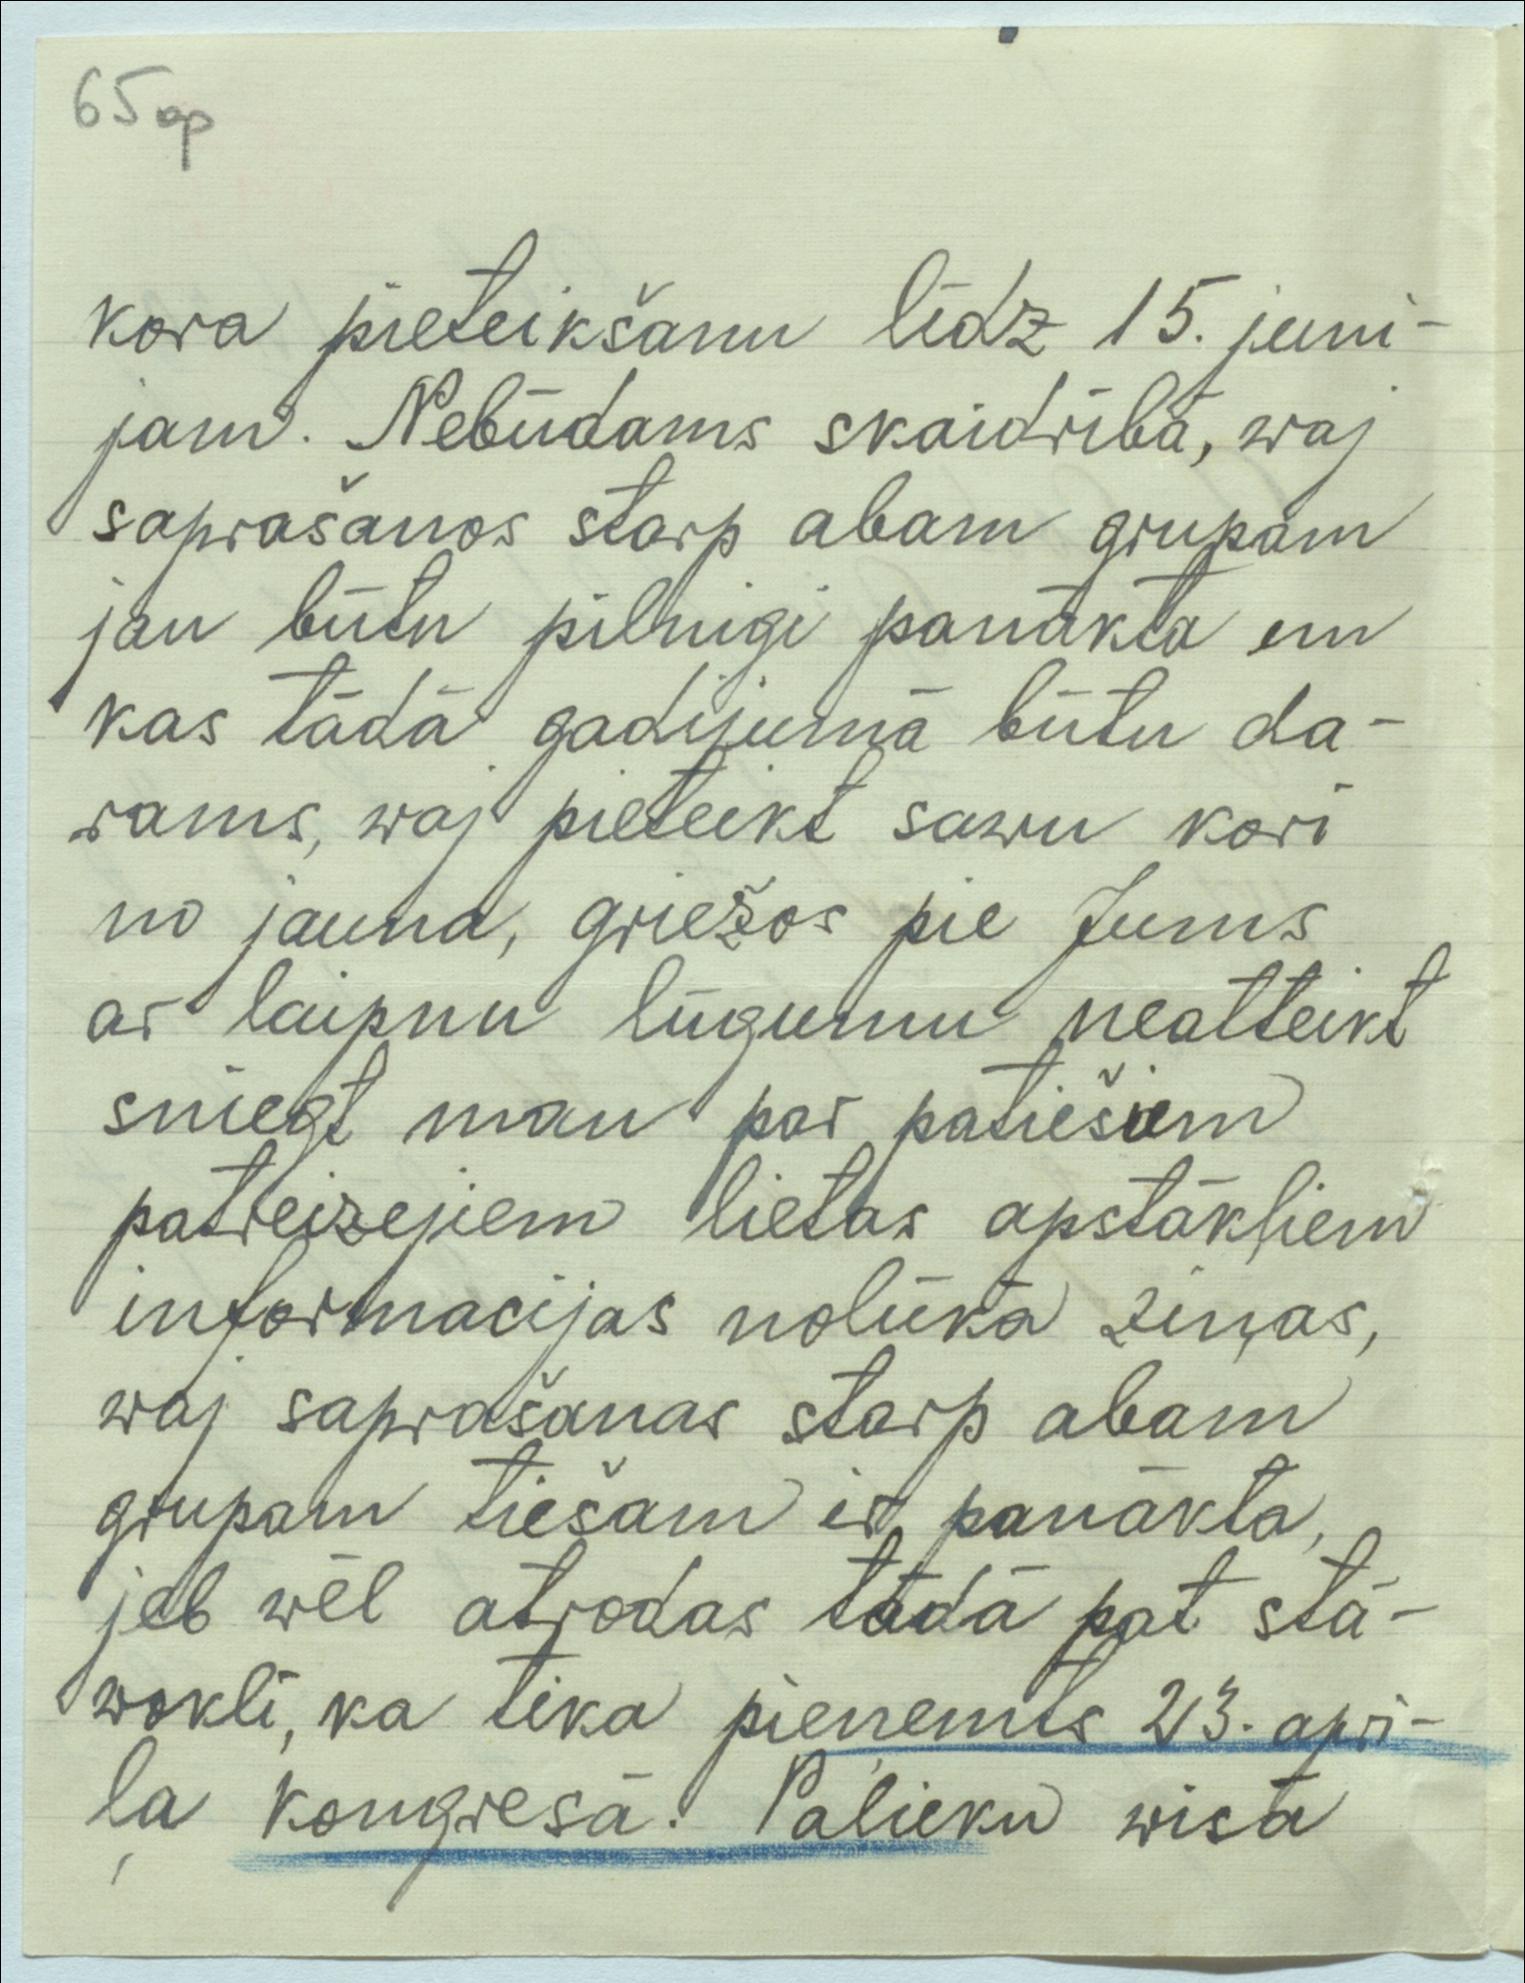 65 op
kora pieteikšanu līdz 15. juni-
jam. Nebūdams skaidrībā, waj
saprašanos starp abam grupam
jau būtu pilnigi panākta un
kas tādā gadijumā būtu da-
rams, waj pieteikt sawu kori
no jauna, griežos pie Jums
ar laipnu lūgumu neatteikt
sniegt man par patiešiem
patreizejiem lietas apstākļiem
informacijas nolūkā ziņas,
waj saprašanas starp abam
grupam tiešam ir panākta,
jeb wēl atrodas tādā pat stā-
woklī, ka tika pieņemts 23. apri-
ļa kongresā. Palieku wisā